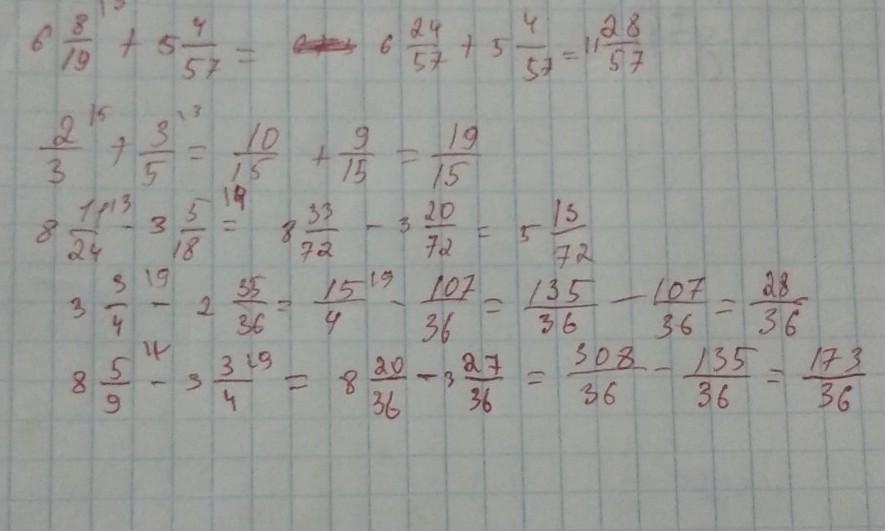 6 8/19 ¹³ + 5 4/57 = 6 24/57 + 5 4/57 = 11 28/57
2/3 ¹⁵ + 3/5 ¹³ = 10/15 + 9/15 = 19/15
8 11/24 ¹³ - 3 5/18 ¹⁴ = 8 33/72 - 3 20/72 = 5 13/72
3 3/4 ¹⁹ - 2 35/36 = 15/4 ¹⁹ - 107/36 = 135/36 - 107/36 = 28/36
8 5/9 ¹⁴ - 3 3/4 ¹⁹ = 8 20/36 - 3 27/36 = 308/36 - 135/36 = 173/36